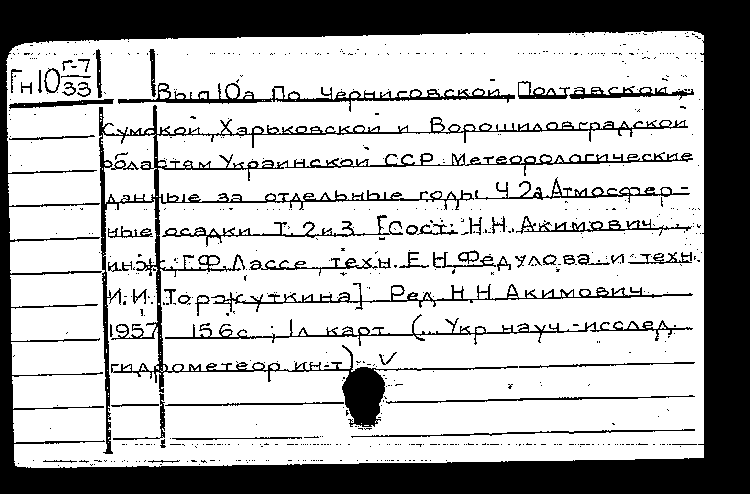 Гн10 г-7/33
Вып 10а По Черниговской, Полтавской,
Сумской, Харьковской и Ворошиловградской
областям Украинской ССР. Метеорологические
данные за отдельные годы. Ч. 2а. Атмосфер-
ные осадки. Т. 2 и 3. [Сост.: Н.Н. Акимович,
инж.; Г.Ф. Лассе, техн. Е.Н. Федулова и техн.
И.И. Торжуткина] Ред. Н.Н. Акимович.
1957 156с.; 1л карт. (... Укр науч.-исслед.
гидрометеор. ин-т) ✓